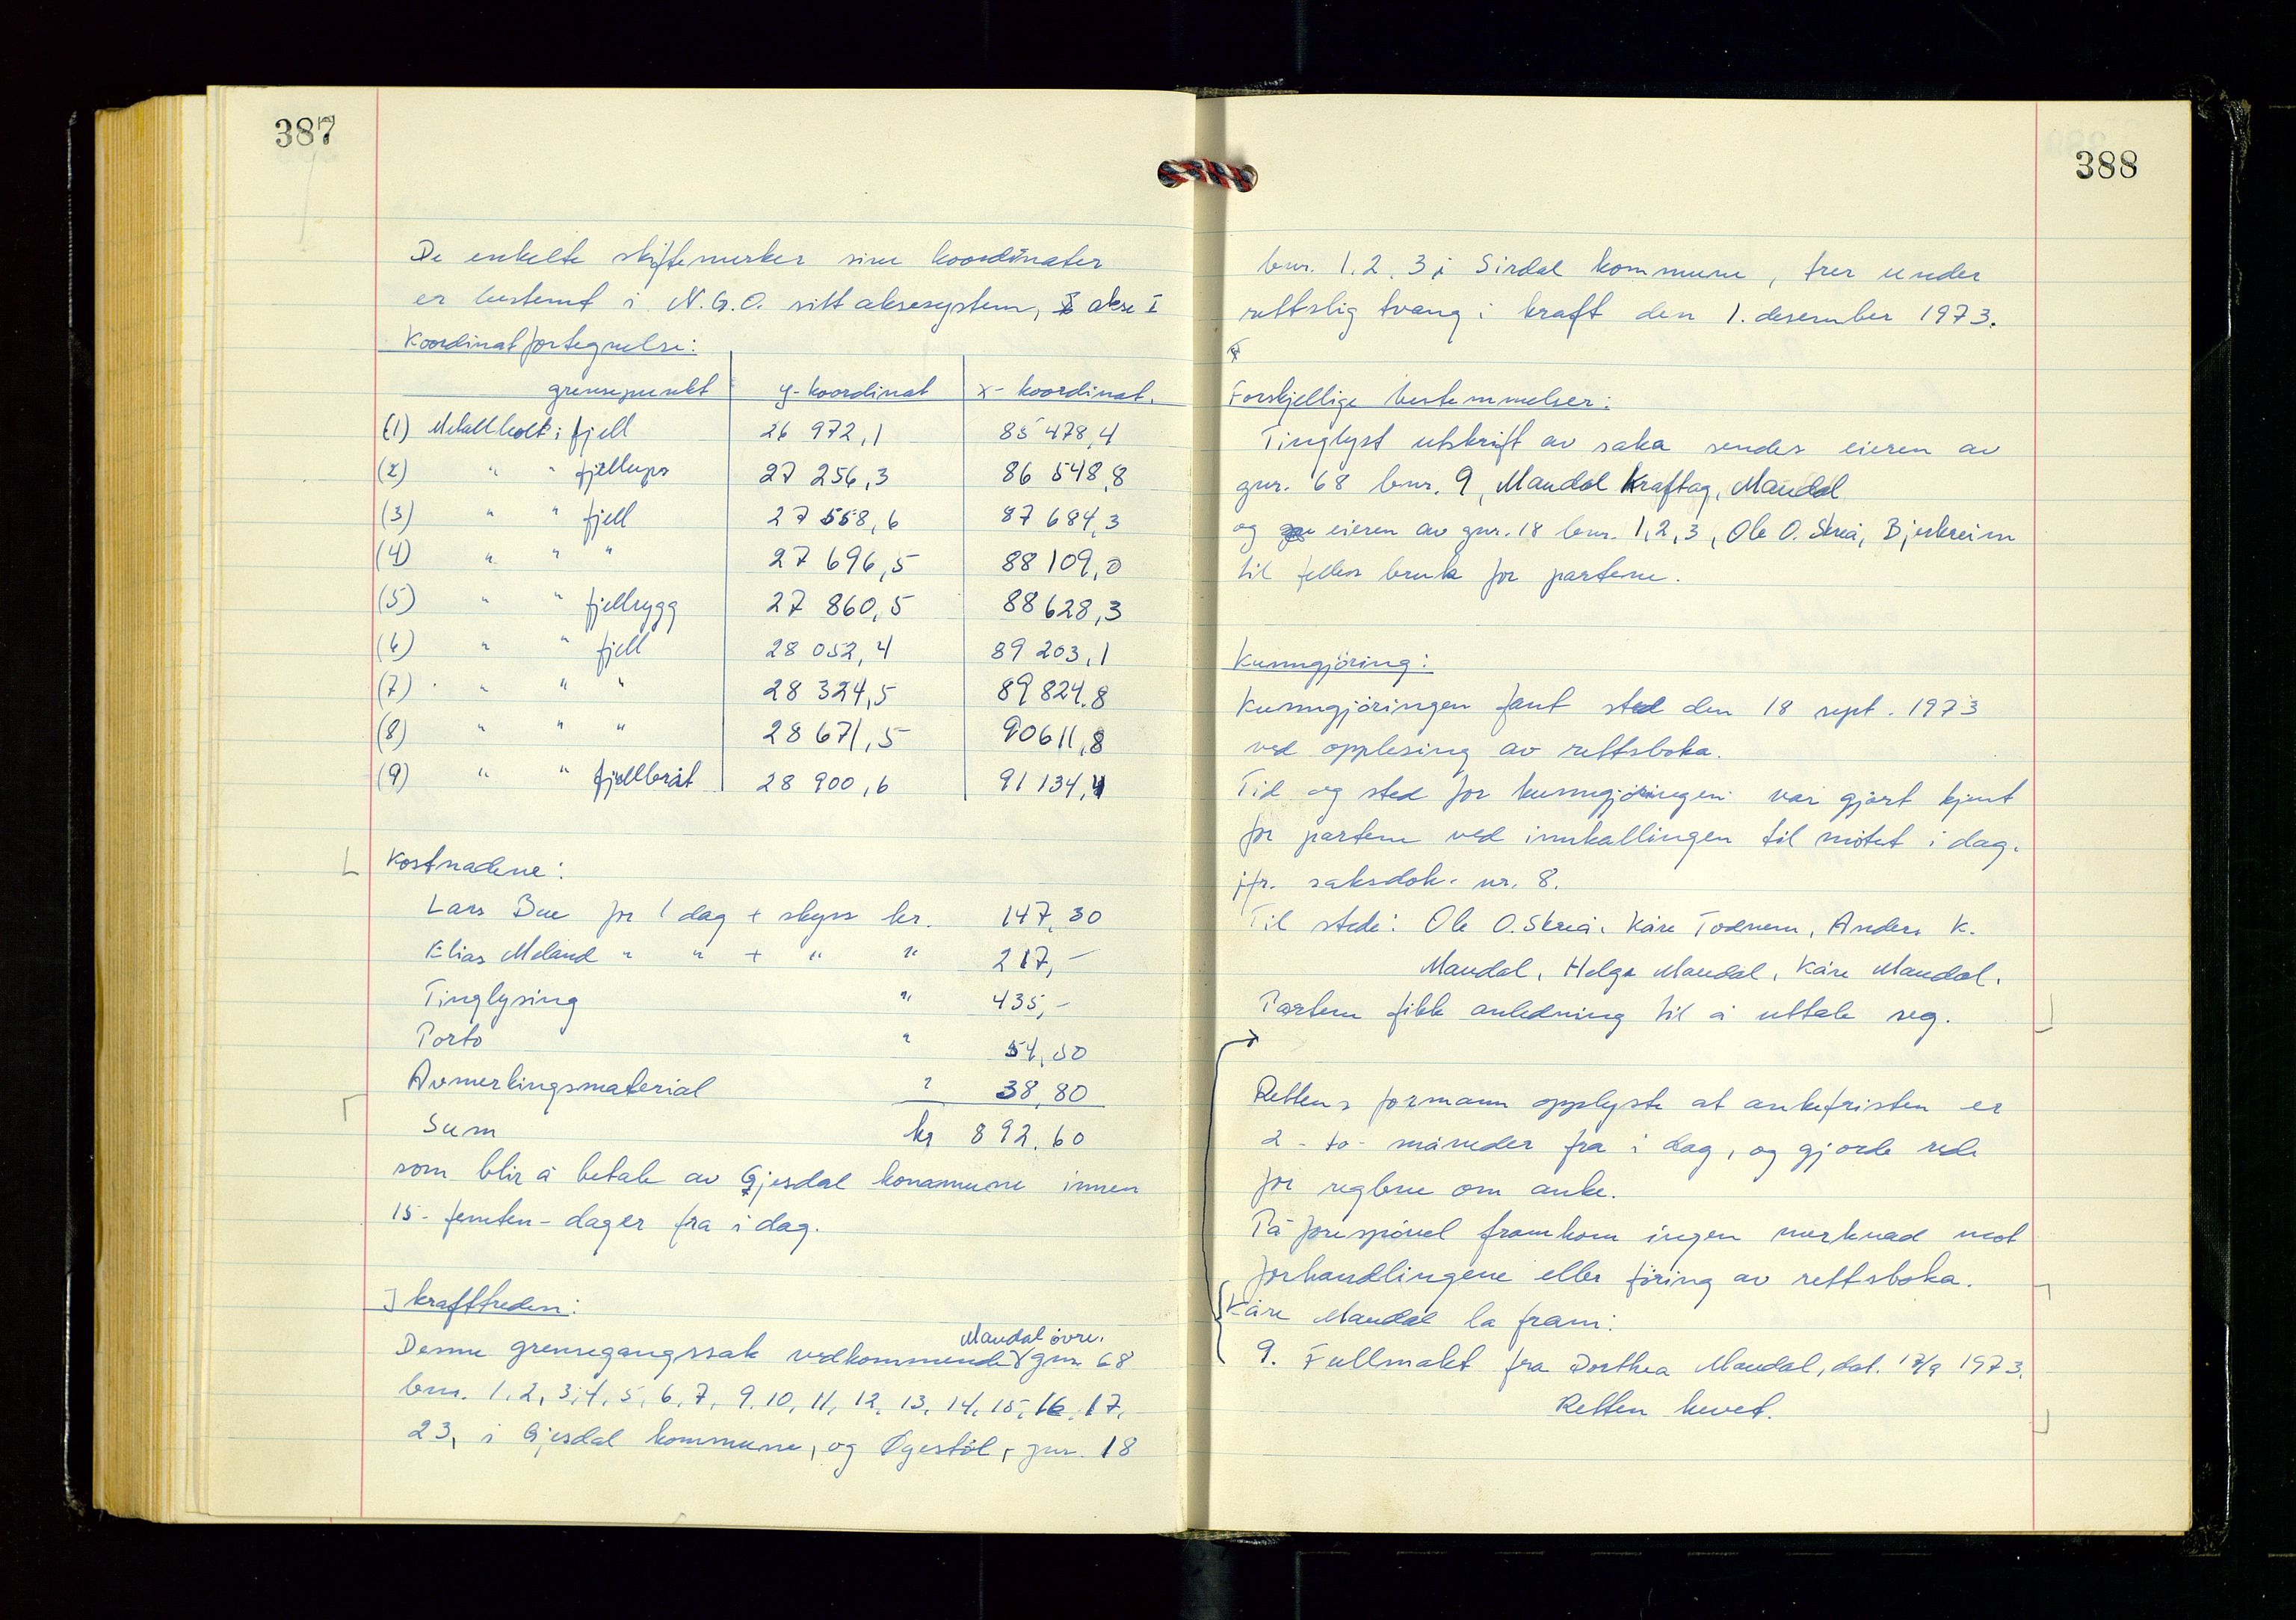 387
De enkelte skiftemerker sine koordinater
er bestemt i N.G.O. sitt aksesystem, akse I
Koordinatfortegnelse:
grensepunkt y-koordinat x-koordinat.
(1) Metallbolt i fjell 26 972,1 85 478,4
(2) " " fjellups 27 256,3 86 548,8
(3) " " fjell 27 558,6 87 684,3
(4) " " " 27 696,5 88 109,0
(5) " " fjellrygg 27 860,5 88 628,3
(6) " " fjell 28 052,4 89 203,1
(7) " " " 28 324,5 89 824,8
(8) " " " 28 671,5 90611,8
(9) " " fjellbråt 28 900,6 91 134,4
Kostnadene:
Lars Bue for 1 dag + skyss kr. 147,30
Elias Meland " " + " " 217,-
Tinglysing " 435,-
Porto " 54,50
Avmerkingsmaterial " 38,80
Sum kr 892,60
som blir å betale av Gjesdal kommune innen
15- femten- dager fra i dag.
Ikrafttreden:
Mandal övre.
Denne grensegangssak vedkommende gnr. 68
bnr. 1, 2, 3, 4, 5, 6, 7, 9, 10, 11, 12, 13, 14, 15, 16, 17,
23, i Gjesdal kommune, og Øgestöl, gnr. 18
388
bnr. 1. 2. 3 i Sirdal kommune, trer under
rettslig tvang i kraft den 1. desember 1973.
Forskjellige bestemmelser:
Tinglyst utskrift av saka sendes eieren av
gnr. 68 bnr. 9, Mandal Kraftag, Mandal
og eieren av gnr. 18 bnr. 1, 2, 3, Ole O. Skreå, Bjerkreim
til felles bruk for partene.
Kunngjöring:
Kunngjöringen fant sted den 18 sept. 1973
ved opplesing av rettsboka.
Tid og sted for kunngjöringen var gjort kjent
for partene ved innkallingen til mötet i dag.
jfr. saksdok. nr. 8.
Til stede: Ole O. Skreå. Kåre Todnem, Anders K.
Mandal, Helge Mandal, Kåre Mandal.
Partene fikk anledning til å uttale seg.
Rettens formann opplyste at ankefristen er
2 - to - måneder fra i dag, og gjorde rede
for reglene om anke.
På forespörsel framkom ingen merknad mot
forhandlingene eller föring av rettsboka.
Kåre Mandal la fram:
9. Fullmakt fra Dorthea Mandal, dat. 17/9 1973.
Retten hevet.